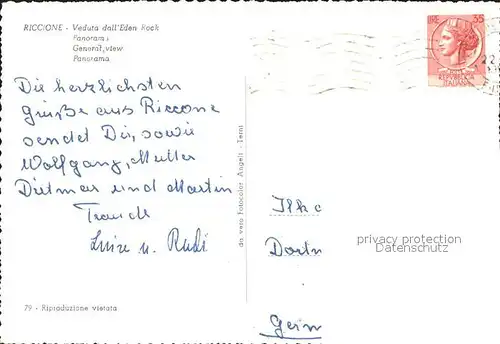 RICCIONE - Veduta dall'Eden Rock
Panorama
General view
Panorama
LIRE 35
REPVBBLICA
ITALIANA
22.
Die herzlichsten
Grüße aus Riccone
sendet Dir, sowie
Wolfgang, Mutter
Dietmar und Martin
Traude
Luise u. Rudi
da vero Fotocolor Angeli - Terni
Ilka
Dortm
Germ
privacy protection
Datenschutz
79 - Riproduzione vietata